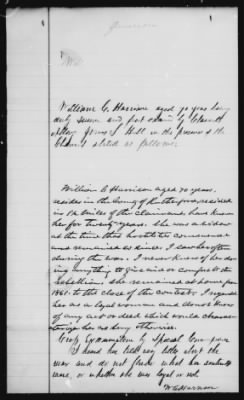 William C. Harrison aged 70 years being
duly sworn and put
Atty Jones S. Hill in the presence of the
Claimt stated as follows:
William C Harrison aged 70 years,
resides in the County of Rutherford, resided
in 1½ miles of the claimant, have known
her for twenty years. She was a widow
at the time that hostilities commenced
and remained so since. I saw her often
during the war. I never knew of her do-
ing anything to give aid or comfort to the
rebellion, she remained at home from
1861 to the close of the contest. I regarded
her as a loyal woman and do not know
of any act or deed which would characterize
her as any otherwise.
Cross Examination by Special Com
I have her talk very little about the
war and do not know what her sentiments
were, or whether she was loyal or not.
W C Harrison